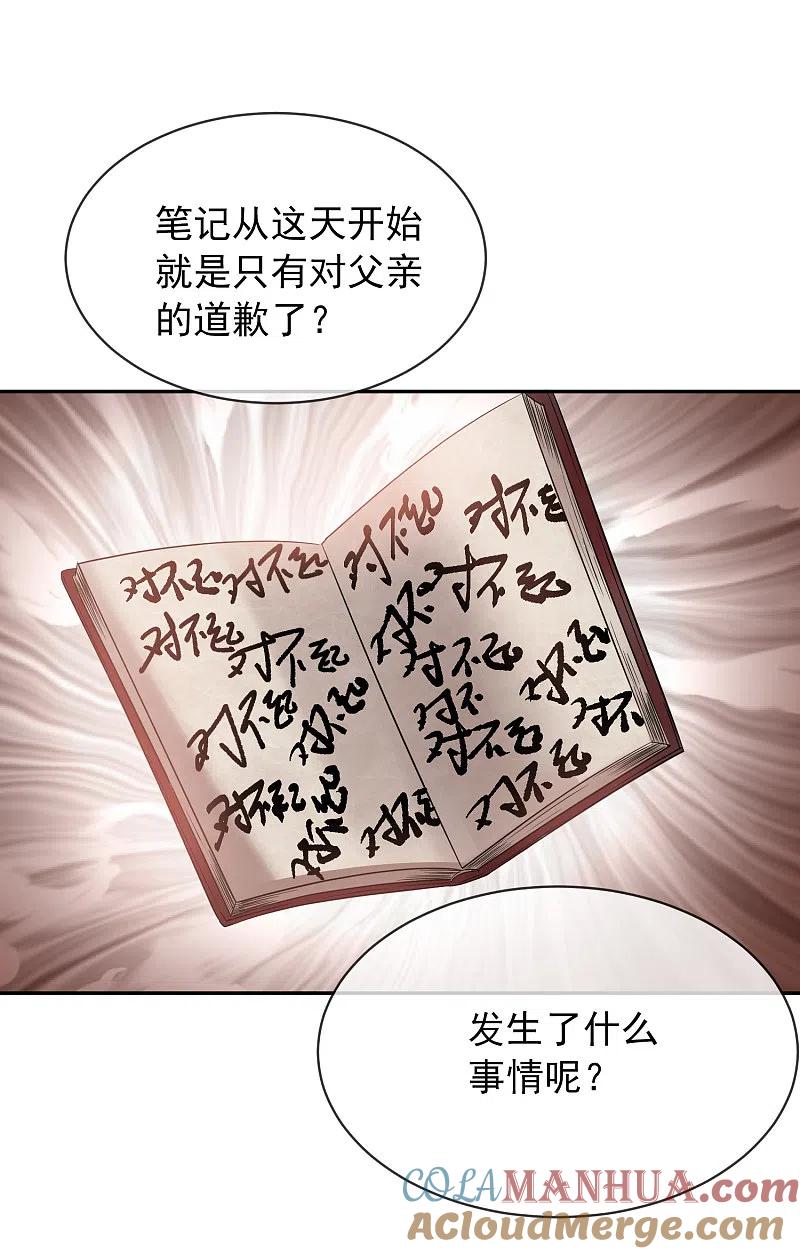 笔记从这天开始
就是只有对父亲
的道歉了？
对不起 对不起 对不起 对不起
对不起 对不起 对不起 对不起
对不起 对不起 对不起 对不起
对不起 对不起 对不起 对不
对不起 对不起 对不起 对不
发生了什么
事情呢？
COLAMANHUA.com
AcloudMerge.com